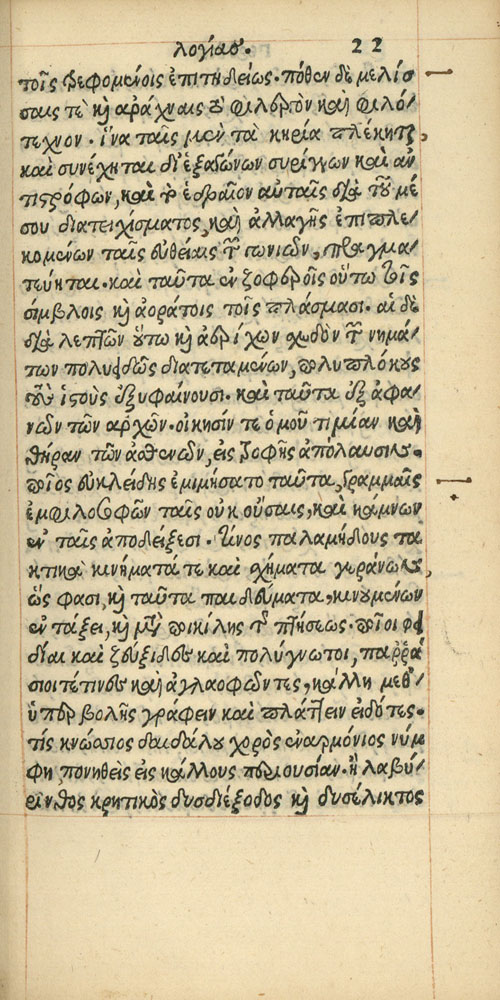 λογίασ. 22
τοῖς τρεφομένοις ἐπιτηδείως. πόθεν δὲ μελίσ
σαις τὲ κὶ ἀράχναις τὸ φιλεργὸν καὶ φιλό/
τεχνον. ἵνα ταῖς μὲν τὰ κηρία πλέκητ,
καὶ συνέχηται δι' ἑξαγώνων συρίγγων καὶ ἀν
τιςρόφων, καὶ τὸ ἑδραῖον αὐταῖς διὰ τοῦ μέ
σου διατειχίσματος, καὶ ἀλλαγῆς ἐπιπλε/
κομένων ταῖς εὐθείαις τῶν γωνιῶν, πραγμα/
τεύηται. καὶ ταῦτα ἐν ζοφεροῖς οὕτω τοῖς
σίμβλοις κὶ ἀοράτοις τοῖς πλάσμασι. αἱ δὲ
διὰ λεπτῶν οὕτω κὶ ἀερίχων σχεδὸν τῶν νημά/
των πολυειδῶς διατεταμένων, πολυπλόκους
τοὺς ἱςοὺς ἐξυφαίνουσι. καὶ ταῦτα ἐξ ἀφα/
νῶν τῶν ἀρχῶν. οἴκησίν τε ὁμοῦ τιμίαν καὶ
θήραν τῶν ἀσθενῶν, εἰς τροφῆς ἀπόλαυσιν.
ποῖος εὐκλείδης ἐμιμήσατο ταῦτα, γραμμαῖς
ἐμφιλοσοφῶν ταῖς οὐκ οὔσαις, καὶ κάμνων
ἐν ταῖς ἀποδείξεσι. τίνος παλαμήδους τα
κτικὰ κινήματά τε καὶ σχήματα γεράνων,
ὥς φασι, κὶ ταῦτα παιδεύματα, κινουμένων
ἐν τάξει, κὶ μετὰ ποικίλης τῆς πτήσεως. ποῖοι φει
δίαι καὶ ζεύξιδες καὶ πολύγνωτοι, παῤῥά
σιοί τέ τινες καὶ ἀγλαοφῶντες, κάλλη μεθ'/
ὑπερβολῆς γράφειν καὶ πλάττειν εἰδότες.
τίς κνώσσιος δαιδάλου χορὸς ἐναρμόνιος νύμ
φῃ πονηθεὶς εἰς κάλλους περιουσίαν. ἢ λαβύ/
ρινθος κρητικὸς δυσδιέξοδος κὶ δυσέλικτος